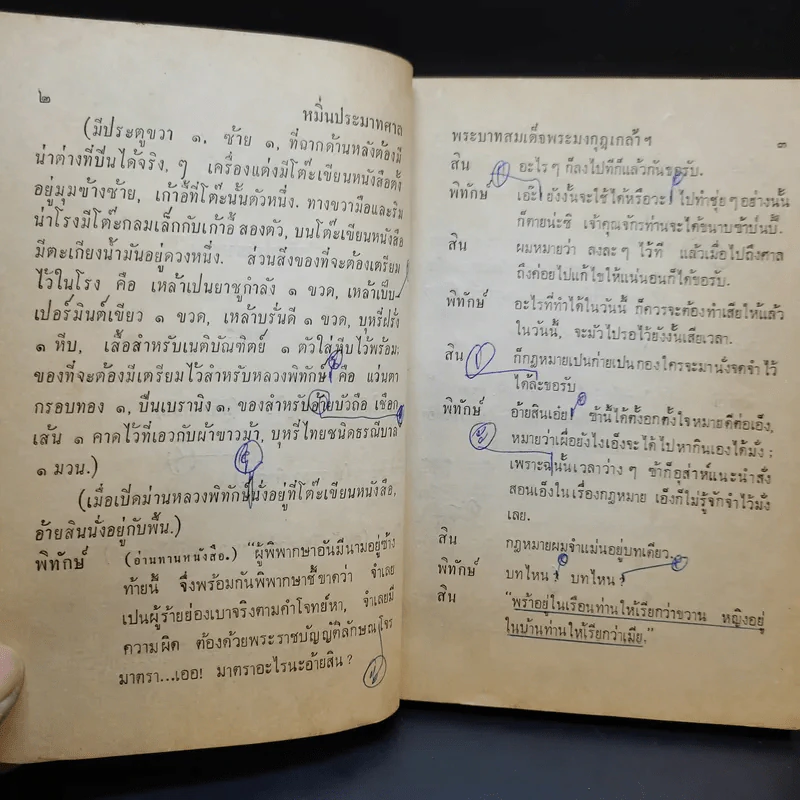 ๒
หมิ่นประมาทศาล
(มีประตูขวา ๑, ซ้าย ๑, ที่ฉากด้านหลังต้องมี
น่าต่างที่ปีนได้จริง, ๆ เครื่องแต่งมีโต๊ะเขียนหนังสือตั้ง
อยู่มุมข้างซ้าย, เก้าอี้ที่โต๊ะนั้นตัวหนึ่ง. ทางขวามือและริม
น่าโรงมีโต๊ะกลมเล็กกับเก้าอี้ สองตัว, บนโต๊ะเขียนหนังสือ
มีตะเกียงน้ำมันอยู่ดวงหนึ่ง. ส่วนสิ่งของที่จะต้องเตรียม
ไว้ในโรง คือ เหล้าเปนยาชูกำลัง ๑ ขวด, เหล้าเป็บ-
เปอร์มินต์เขียว ๑ ขวด, เหล้าบรั่นดี ๑ ขวด, บุหรี่ฝรั่ง
๑ หีบ, เสื้อสำหรับเนติบัณฑิตย์ ๑ ตัวใส่หีบไว้พร้อม;
ของที่จะต้องมีเตรียมไว้สำหรับหลวงพิทักษ์ คือ แว่นตา
กรอบทอง ๑, ปืนเบรานิง ๑. ของสำหรับอ้ายบัวถือ เชือก
เส้น ๑ คาดไว้ที่เอวกับผ้าขาวม้า, บุหรี่ไทยชนิดธรณีบาล
๑ มวน.)
(เมื่อเปิดม่านหลวงพิทักษ์นั่งอยู่ที่โต๊ะเขียนหนังสือ,
อ้ายสินนั่งอยู่กับพื้น.)
พิทักษ์ (อ่านทานหนังสือ.) "ผู้พิพากษาอันมีนามอยู่ข้าง
ท้ายนี้ จึ่งพร้อมกันพิพากษาชี้ขาดว่า จำเลย
เป็นผู้ร้ายย่องเบาจริงตามคำโจทย์หา, จำเลยมี
ความผิด ต้องด้วยพระราชบัญญัติลักษณโจร
มาตรา...เออ! มาตราอะไรนะอ้ายสิน ?
พระบาทสมเด็จพระมงกุฎเกล้าฯ ๓
สิน อะไร ๆ ก็ลงไปทีก็แล้วกันขอรับ.
พิทักษ์ เอ๊ะ! ยังงั้นจะใช้ได้หรือวะ! ไปทำซุ่ย ๆ อย่างนั้น
ก็ตายน่ะซิ เจ้าคุณจักรท่านจะได้ขนาบข้าป่นปี้.
สิน ผมหมายว่า ลงละ ๆ ไว้ที แล้วเมื่อไปถึงศาล
ถึงค่อยไปแก้ไขให้แน่นอนก็ได้ขอรับ.
พิทักษ์ อะไรที่ทำได้ในวันนี้ ก็ควรจะต้องทำเสียให้แล้ว
ในวันนี้, จะมัวไปรอไว้ยังงั้นเสียเวลา.
สิน ก็กฎหมายเปนก่ายเปนกองใครจะมานั่งจดจำไว้
ได้ล่ะขอรับ
พิทักษ์ อ้ายสินเอ๋ย! ข้านี้ได้ตั้งอกตั้งใจหมายดีต่อเอ็ง,
หมายว่าเผื่อยังไงเอ็งจะได้ไปหากินเองได้มั่ง ;
เพราะฉนั้นเวลาว่าง ๆ ข้าก็อุส่าห์แนะนำสั่ง
สอนเอ็งในเรื่องกฎหมาย เอ็งก็ไม่รู้จักจำไว้มั่ง
เลย.
สิน กฎหมายผมจำแม่นอยู่บทเดียว.
พิทักษ์ บทไหน ? บทไหน ?
สิน "พร้าอยู่ในเรือนท่านให้เรียกว่าขวาน หญิงอยู่
ในบ้านท่านให้เรียกว่าเมีย."